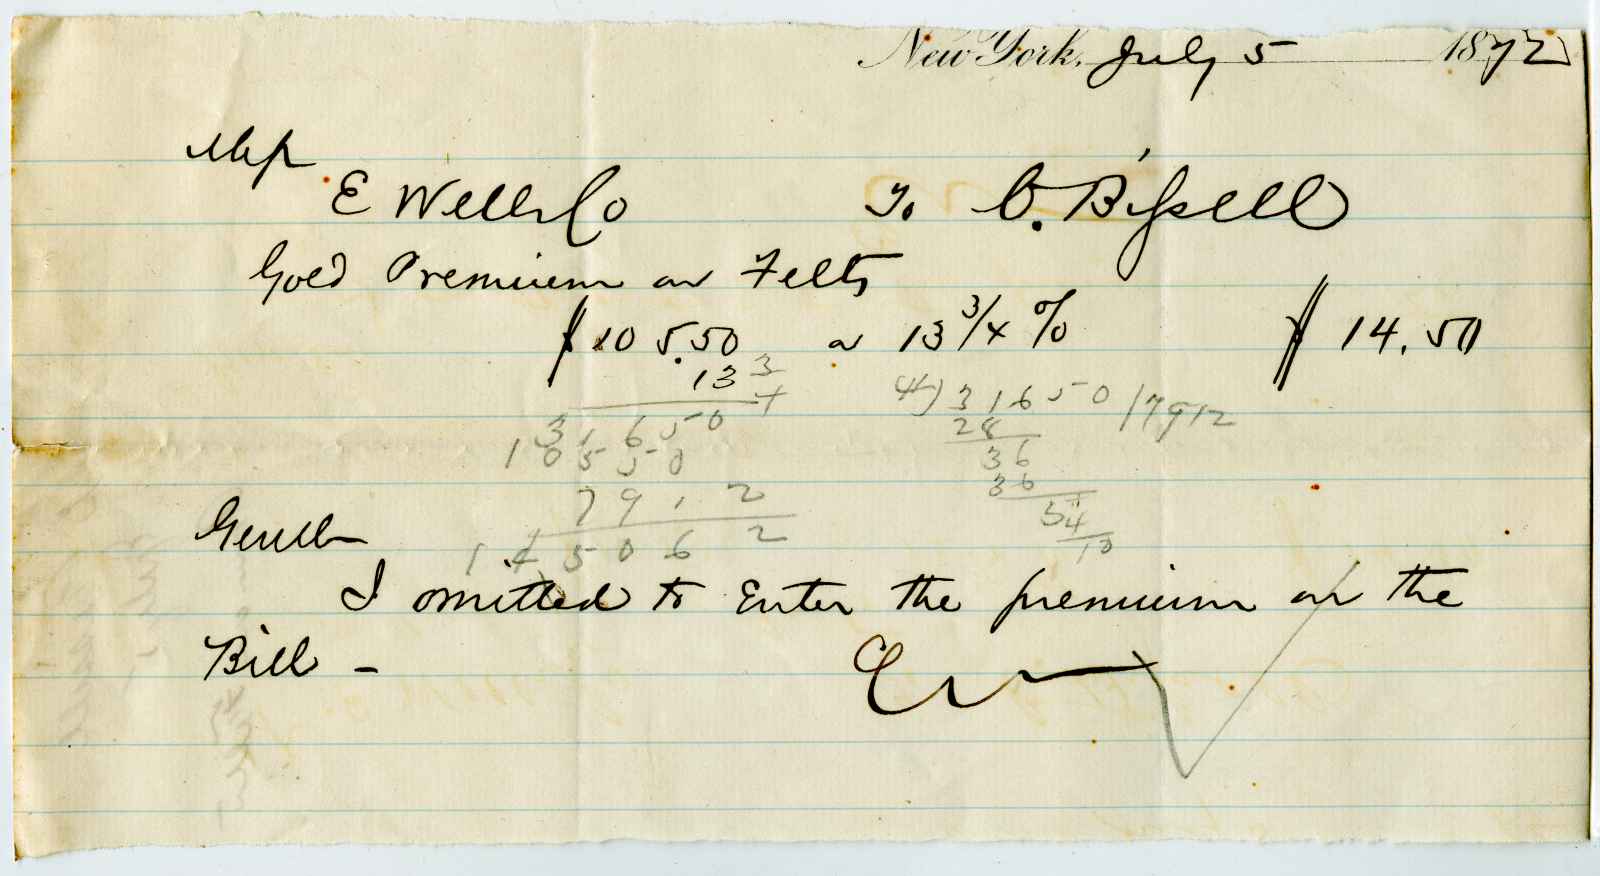 New York, July 5 1872
Mess
E Wells Co To C. Bissell
Gold Premium on Felts
$105.50 a 13 3/4 % $14.50
13 3/4
31650
10550
7912
145062
4) 31650 / 7912
28
36
36
54
10
Gentln
I omitted to Enter the premium on the
Bill -